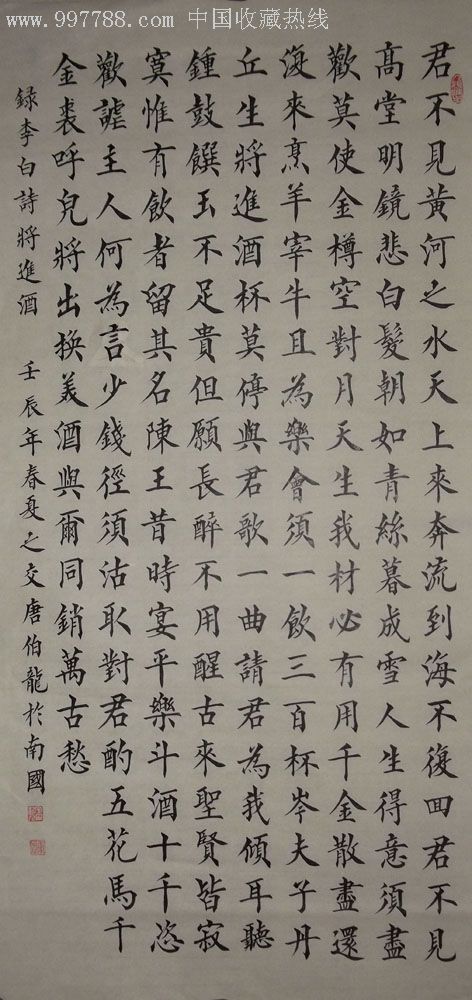 www.997788.com 中国收藏热线
君不見黃河之水天上來奔流到海不復回君不見
髙堂明鏡悲白髮朝如青絲暮成雪人生得意須盡
歡莫使金樽空對月天生我材必有用千金散盡還
復來烹羊宰牛且為樂會須一飲三百杯岑夫子丹
丘生將進酒杯莫停與君歌一曲請君為我傾耳聽
鍾鼓饌玉不足貴但願長醉不用醒古來聖賢皆寂
寞惟有飲者留其名陳王昔時宴平樂斗酒十千恣
歡謔主人何為言少錢徑須沽取對君酌五花馬千
金裘呼兒將出換美酒與爾同銷萬古愁
録李白詩將進酒 壬辰年春夏之交唐伯龍於南國